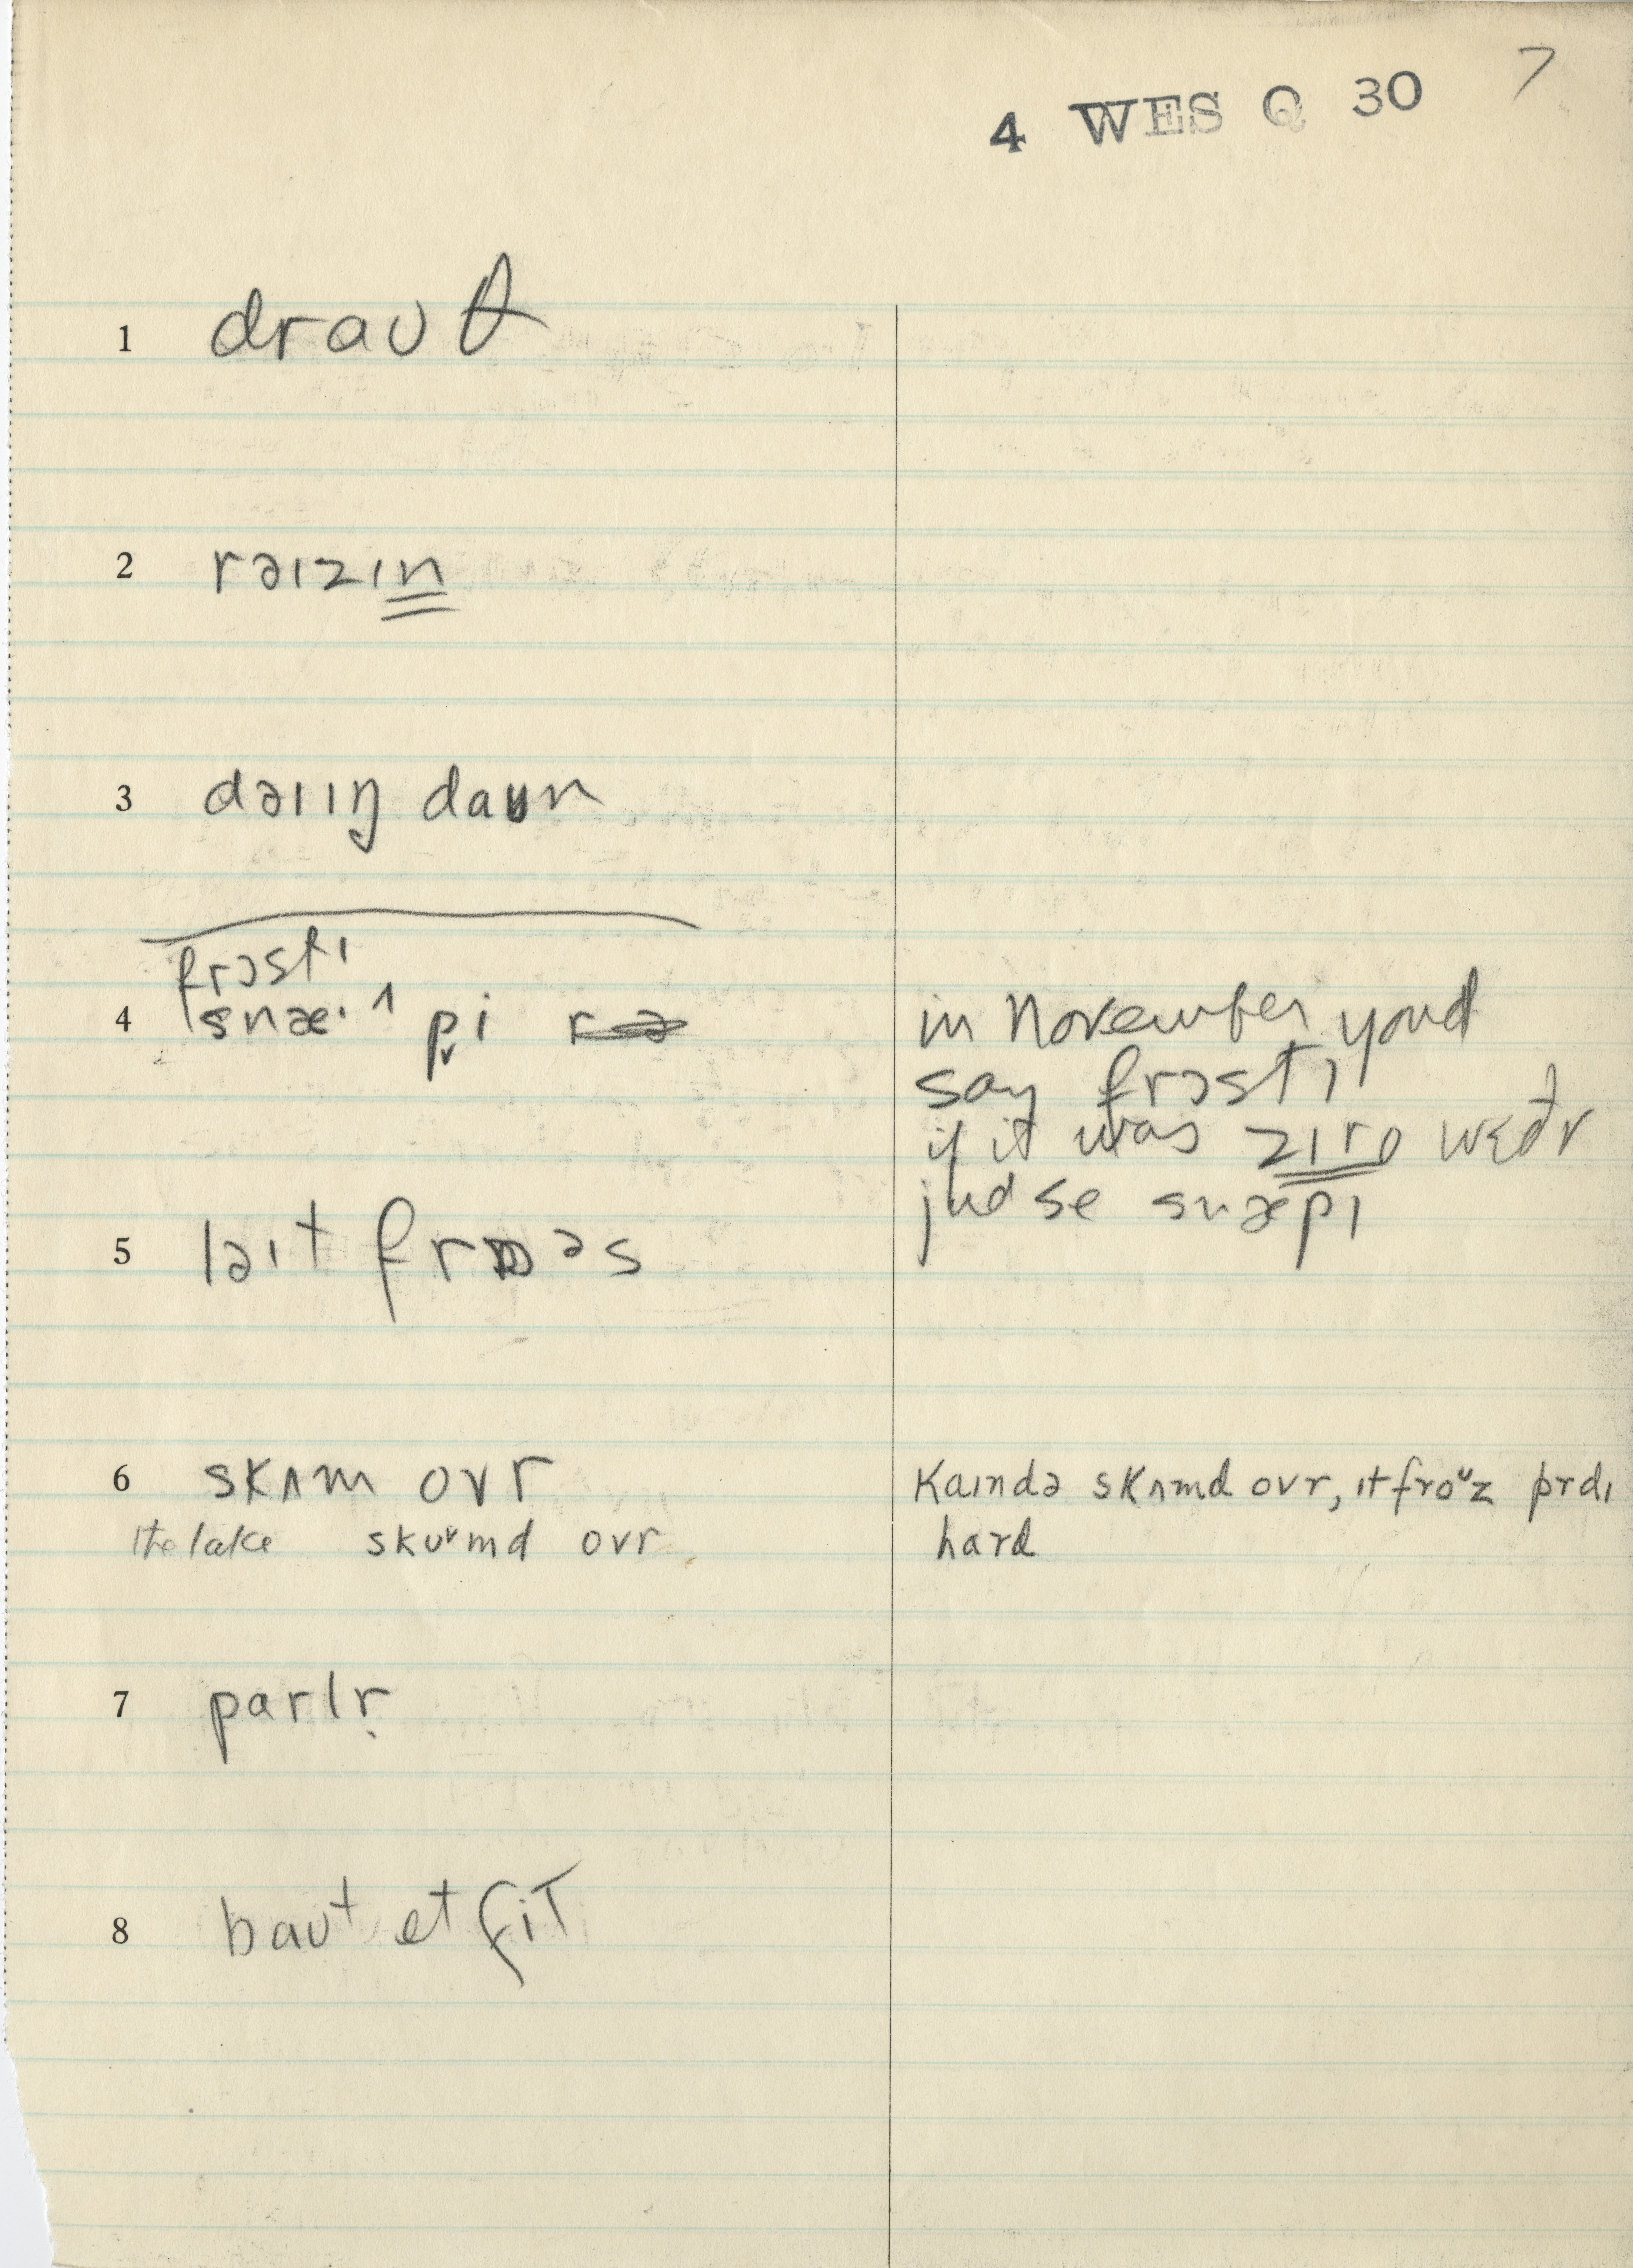 4 WES Q 30 7
1 draʊθ
2 rəɪzɪn
3 dəɪɪŋ daʊn
frɔstɪ
4 snæˑ^ pi
in November youd
say frɔstɪ
if it was zɪro wɛðr
jud se snæpɪ
5 ləɪt frɒəs
6 skʌm ovr
the lake skʊᵛmd ovr
Kaɪndə skʌmd ovr, ɪt froᶷz prdɪ
hard
7 parlr̩
8 baʊt et fiT